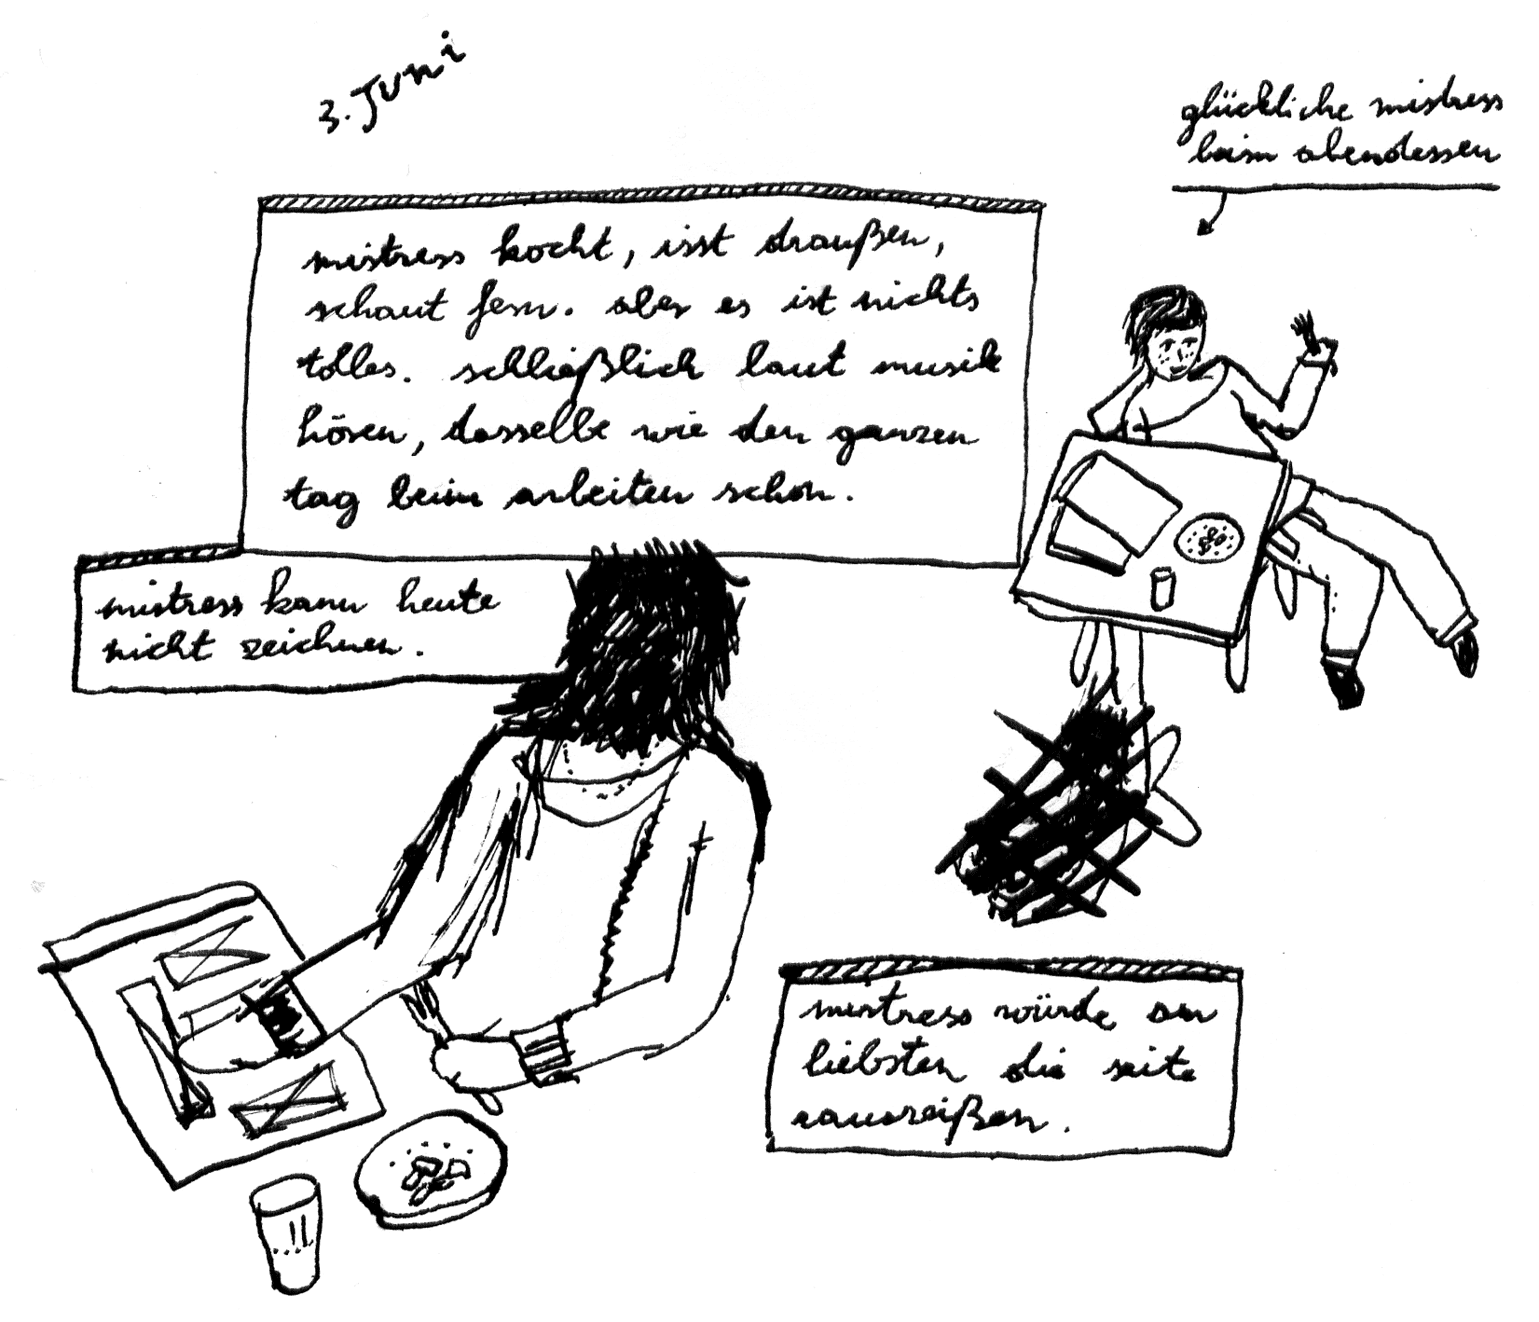 3. Juni
glückliche mistress
beim abendessen
mistress kocht, isst draußen,
schaut fern. aber es ist nichts
tolles. schließlich laut musik
hören, dasselbe wie den ganzen
tag beim arbeiten schon.
mistress kann heute
nicht zeichnen.
mistress würde am
liebsten die seite
rausreißen.